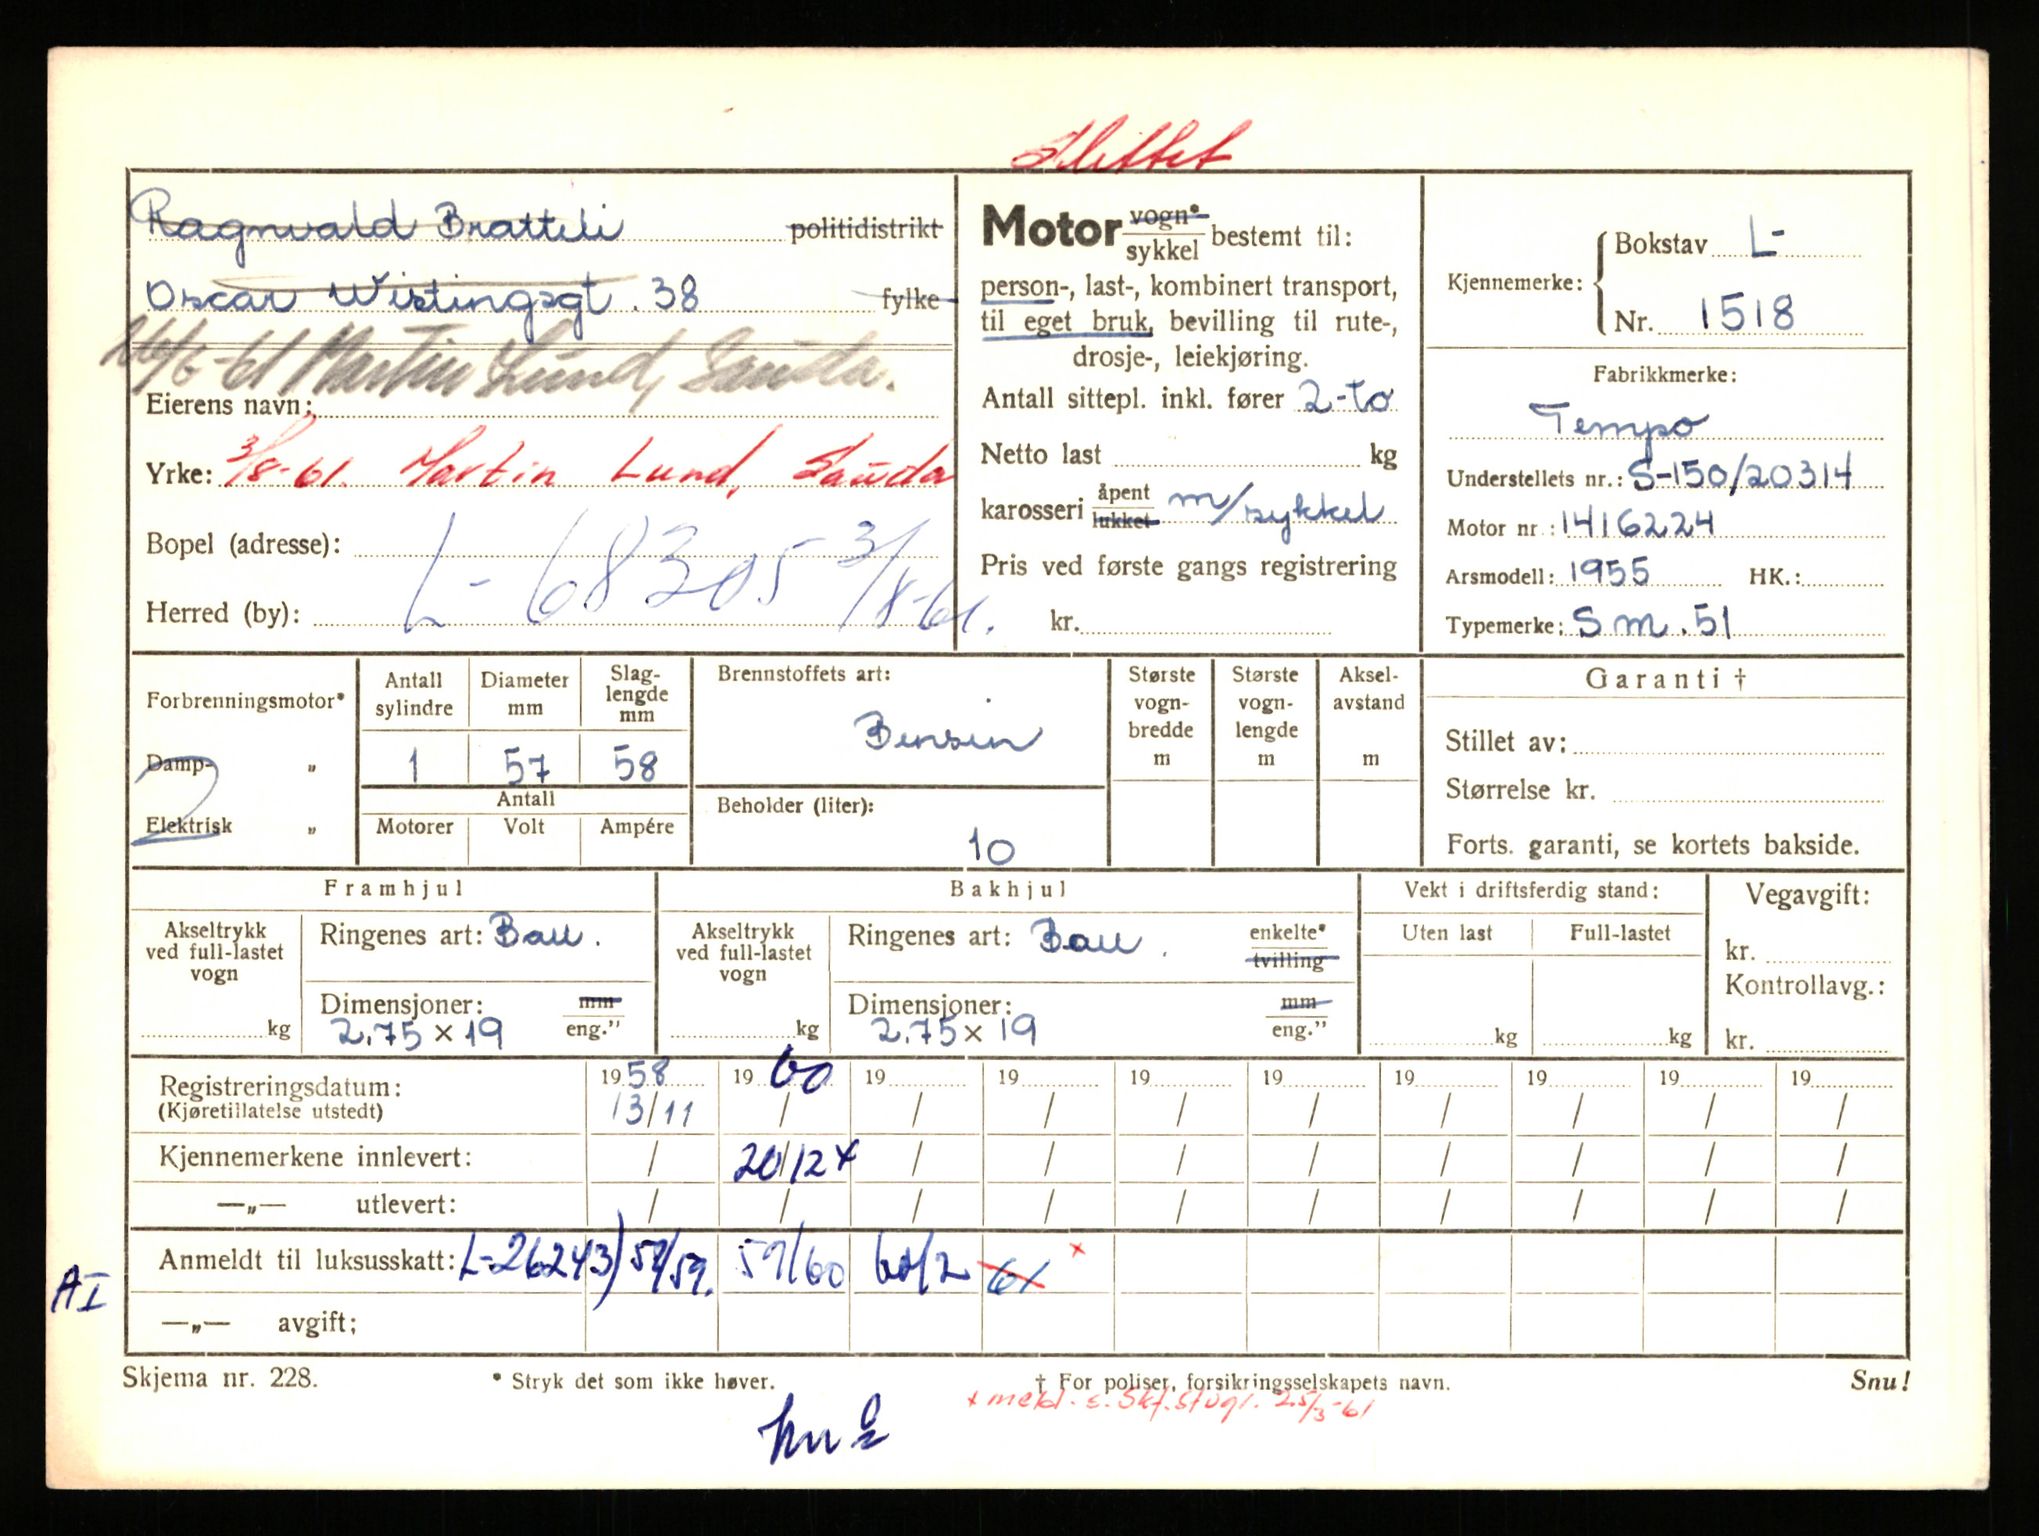 Slettet
Ragnvald Bratteli politidistrikt
Oscar Wistingsgt. 38 fylke
Martin Lund, Sauda.
Eierens navn:
Yrke: 3/8-61. Martin Lund, Sauda
Bopel (adresse):
L-68305 3/8-61.
Herred (by):
Motor vogn* sykkel bestemt til:
person-, last-, kombinert transport,
til eget bruk, bevilling til rute-,
drosje-, leiekjøring.
Antall sittepl. inkl. fører 2-to
Netto last kg
karosseri åpent lukket m/sykkel
Pris ved første gangs registrering
kr.
Kjennemerke: Bokstav L-
Nr. 1518
Fabrikkmerke:
Tempo
Understellets nr.: S-150/20314
Motor nr.: 1416224
Arsmodell: 1955 HK.:
Typemerke: Sm. 51
Forbrenningsmotor*
Damp- „
Elektrisk „
2
Antall sylindre
1
Diameter mm
57
Slag-lengde mm
58
Antall
Motorer Volt Ampére
Brennstoffets art:
Bensin
Beholder (liter):
10
Største vogn-bredde m
Største vogn-lengde m
Aksel-avstand m
Garanti †
Stillet av:
Størrelse kr.
Forts. garanti, se kortets bakside.
Framhjul
Akseltrykk ved full-lastet vogn
kg
Ringenes art: Ball.
Dimensjoner: mm
2.75 x 19 eng."
Bakhjul
Akseltrykk ved full-lastet vogn
kg
Ringenes art: Ball. enkelte* tvilling
Dimensjoner: mm
2.75 x 19 eng."
Vekt i driftsferdig stand:
Uten last Full-lastet
kg kg
Vegavgift:
kr.
Kontrollavg.:
kr.
Registreringsdatum: 1958 1960 19 19 19 19 19 19 19 19
(Kjøretillatelse utstedt) 13/11 / / / / / / / / /
Kjennemerkene innlevert: / 20/12 x / / / / / / / /
—„— utlevert: / / / / / / / / / /
Anmeldt til luksusskatt: L-26243) 58/59. 59/60 60/2 61 x
AI
—„— avgift;
Skjema nr. 228. * Stryk det som ikke høver. † For poliser, forsikringsselskapets navn. Snu!
25/3-61